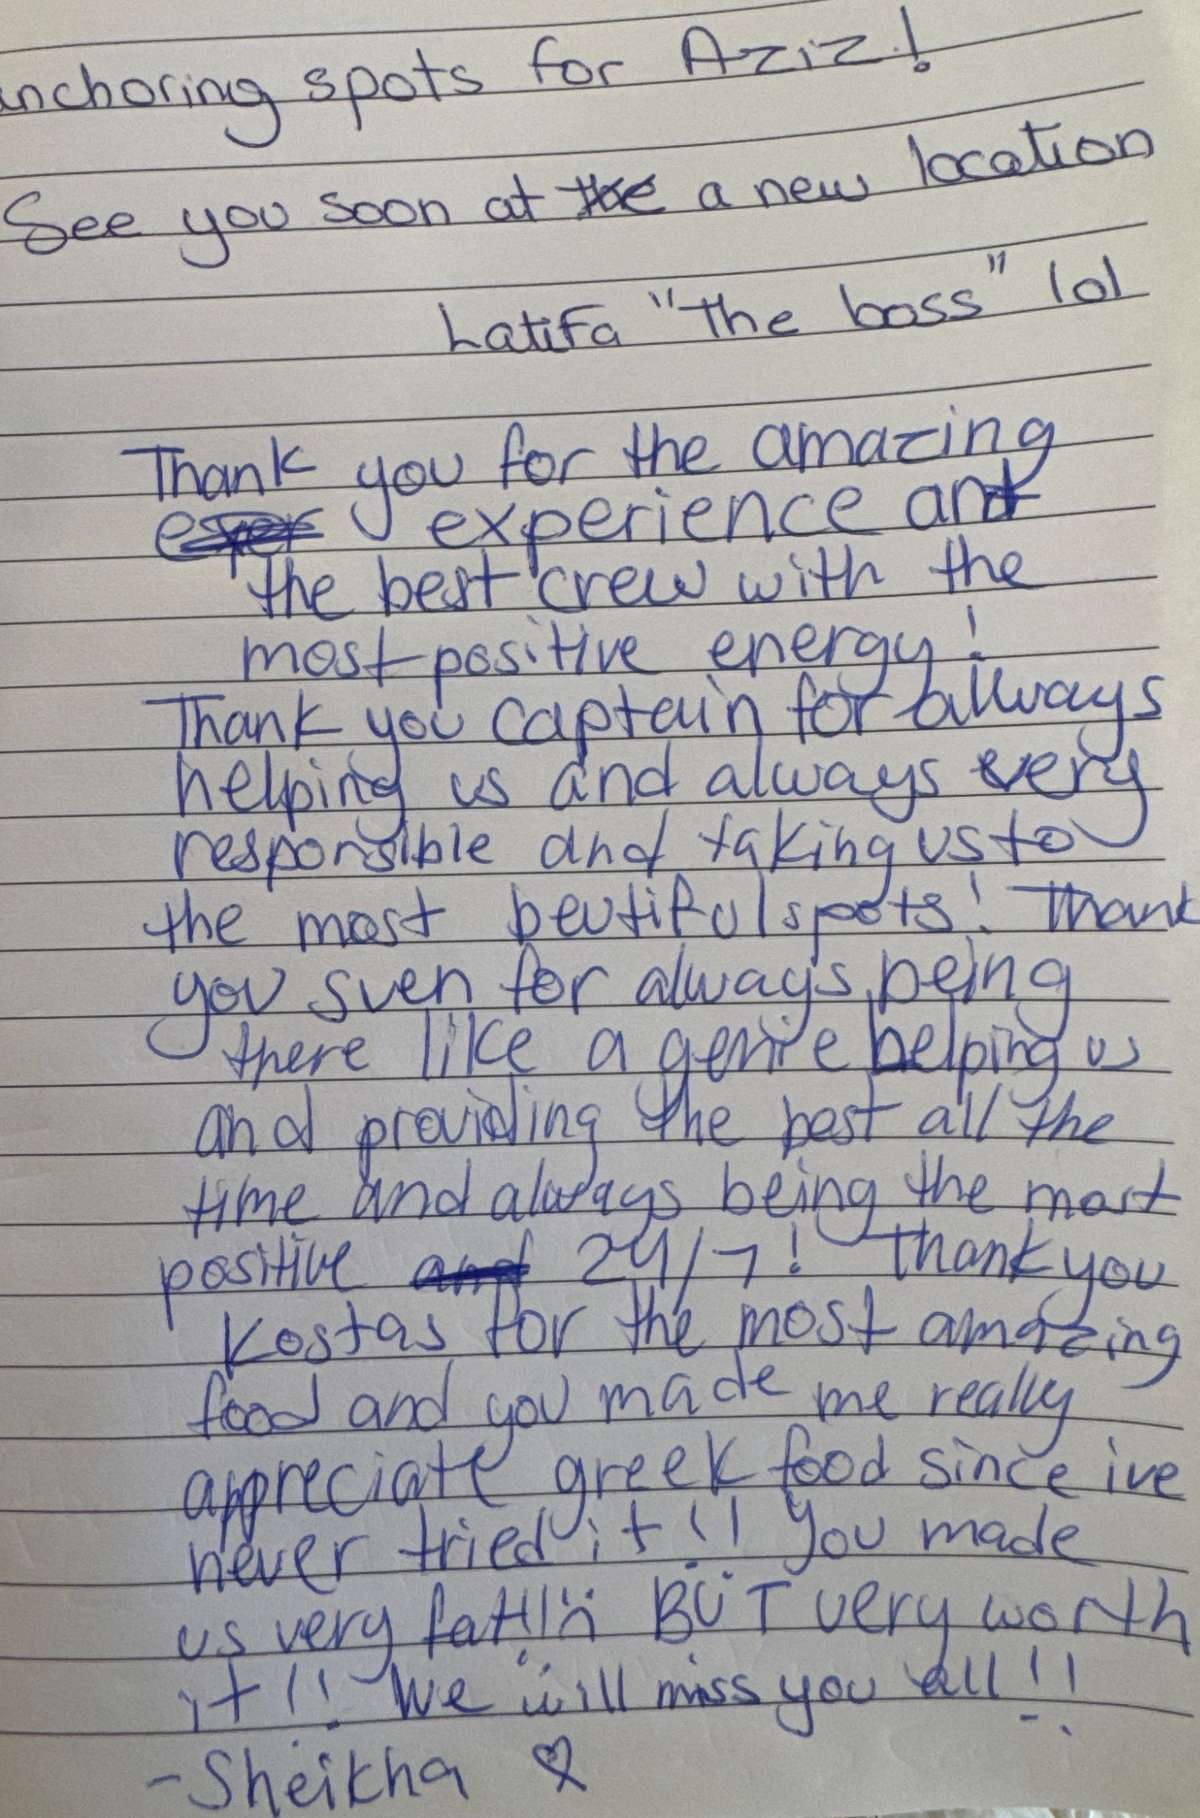 anchoring spots for Aziz!
See you soon at the a new location
Latifa "the boss" lol
Thank you for the amazing
exper experience and
the best crew with the
most positive energy!
Thank you captain for allways
helping us and always very
responsible and taking us to
the most beutiful spots! Thank
you sven for always being
there like a genie helping us
and providing the best all the
time and always being the most
positive and 24/7! Thank you
Kostas for the most amazing
food and you made me really
appreciate greek food since ive
never tried it!! You made
us very fat!!! BUT very worth
it!! We will miss you all!!
-Sheikha ♡